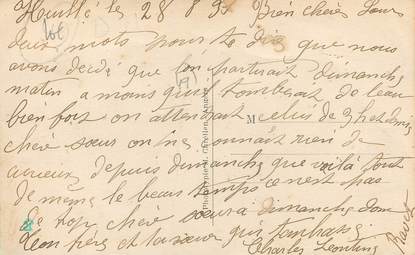 Neuillé le 28 8 9 Bien chère Sœur
deux mots pour te dire que nous
avons décidé que l'on partirait dimanche
matin a moins qu'il tomberait de l'eau
bien fort on attendrait M celui de 9 h et demi
chère sœur on ne connait rien de
depuis dimanche que voilà tout
de même le beau temps ce n'est pas
de trop chère sœur a dimanche donc
Ton frère et ta sœur qui t'embrasse
Charles Léontine
Ravet
Phototypie M. Chrétien, Angers